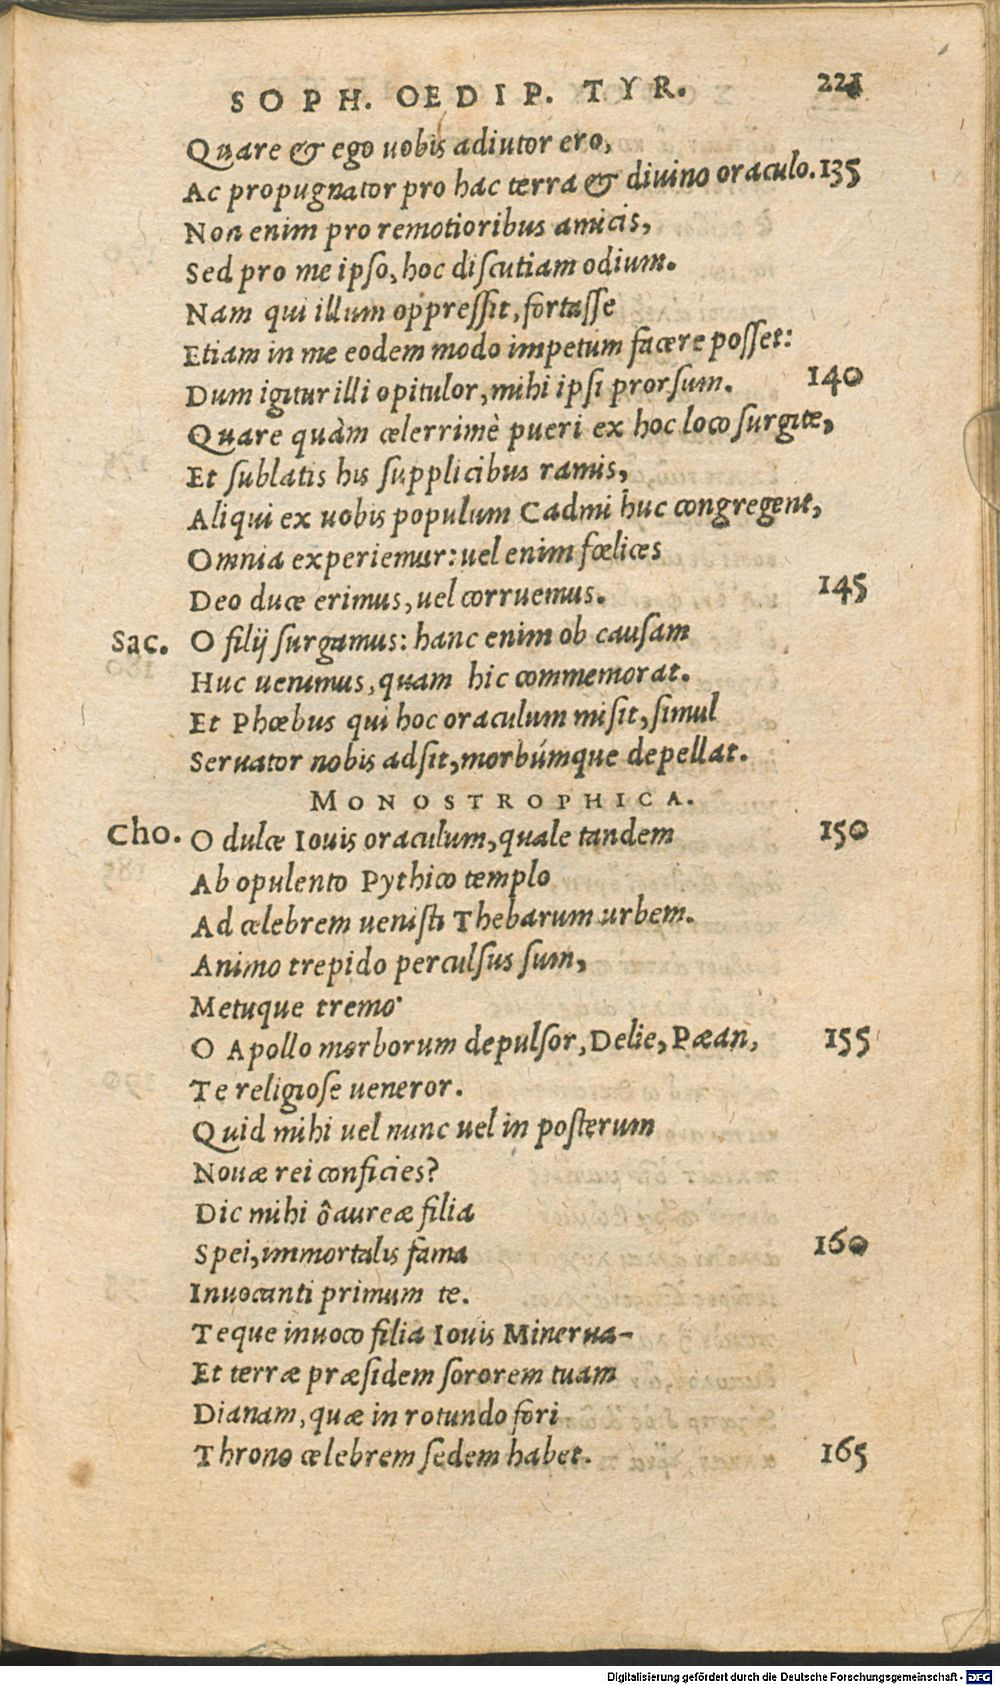 SOPH. OEDIP. TYR. 221
Quare & ego uobis adiutor ero,
Ac propugnator pro hac terra & diuino oraculo. 135
Non enim pro remotioribus amicis,
Sed pro me ipso, hoc discutiam odium.
Nam qui illum oppressit, fortasse
Etiam in me eodem modo impetum facere posset:
Dum igitur illi opitulor, mihi ipsi prorsum. 140
Quare quàm celerrimè pueri ex hoc loco surgite,
Et sublatis his supplicibus ramis,
Aliqui ex uobis populum Cadmi huc congregent,
Omnia experiemur: uel enim fœlices
Deo duce erimus, uel corruemus. 145
Sac. O filij surgamus: hanc enim ob causam
Huc uenimus, quam hic commemorat.
Et Phœbus qui hoc oraculum misit, simul
Seruator nobis adsit, morbúmque depellat.
MONOSTROPHICA.
Cho. O dulce Iouis oraculum, quale tandem 150
Ab opulento Pythico templo
Ad celebrem uenisti Thebarum urbem.
Animo trepido perculsus sum,
Metuque tremo
O Apollo morborum depulsor, Delie, Pæan, 155
Te religiose ueneror.
Quid mihi uel nunc uel in posterum
Nouæ rei conficies?
Dic mihi ô aureæ filia
Spei, immortalis fama 160
Inuocanti primum te.
Teque inuoco filia Iouis Minerua-
Et terræ præsidem sororem tuam
Dianam, quæ in rotundo fori
Throno celebrem sedem habet. 165
Digitalisierung gefördert durch die Deutsche Forschungsgemeinschaft - DFG